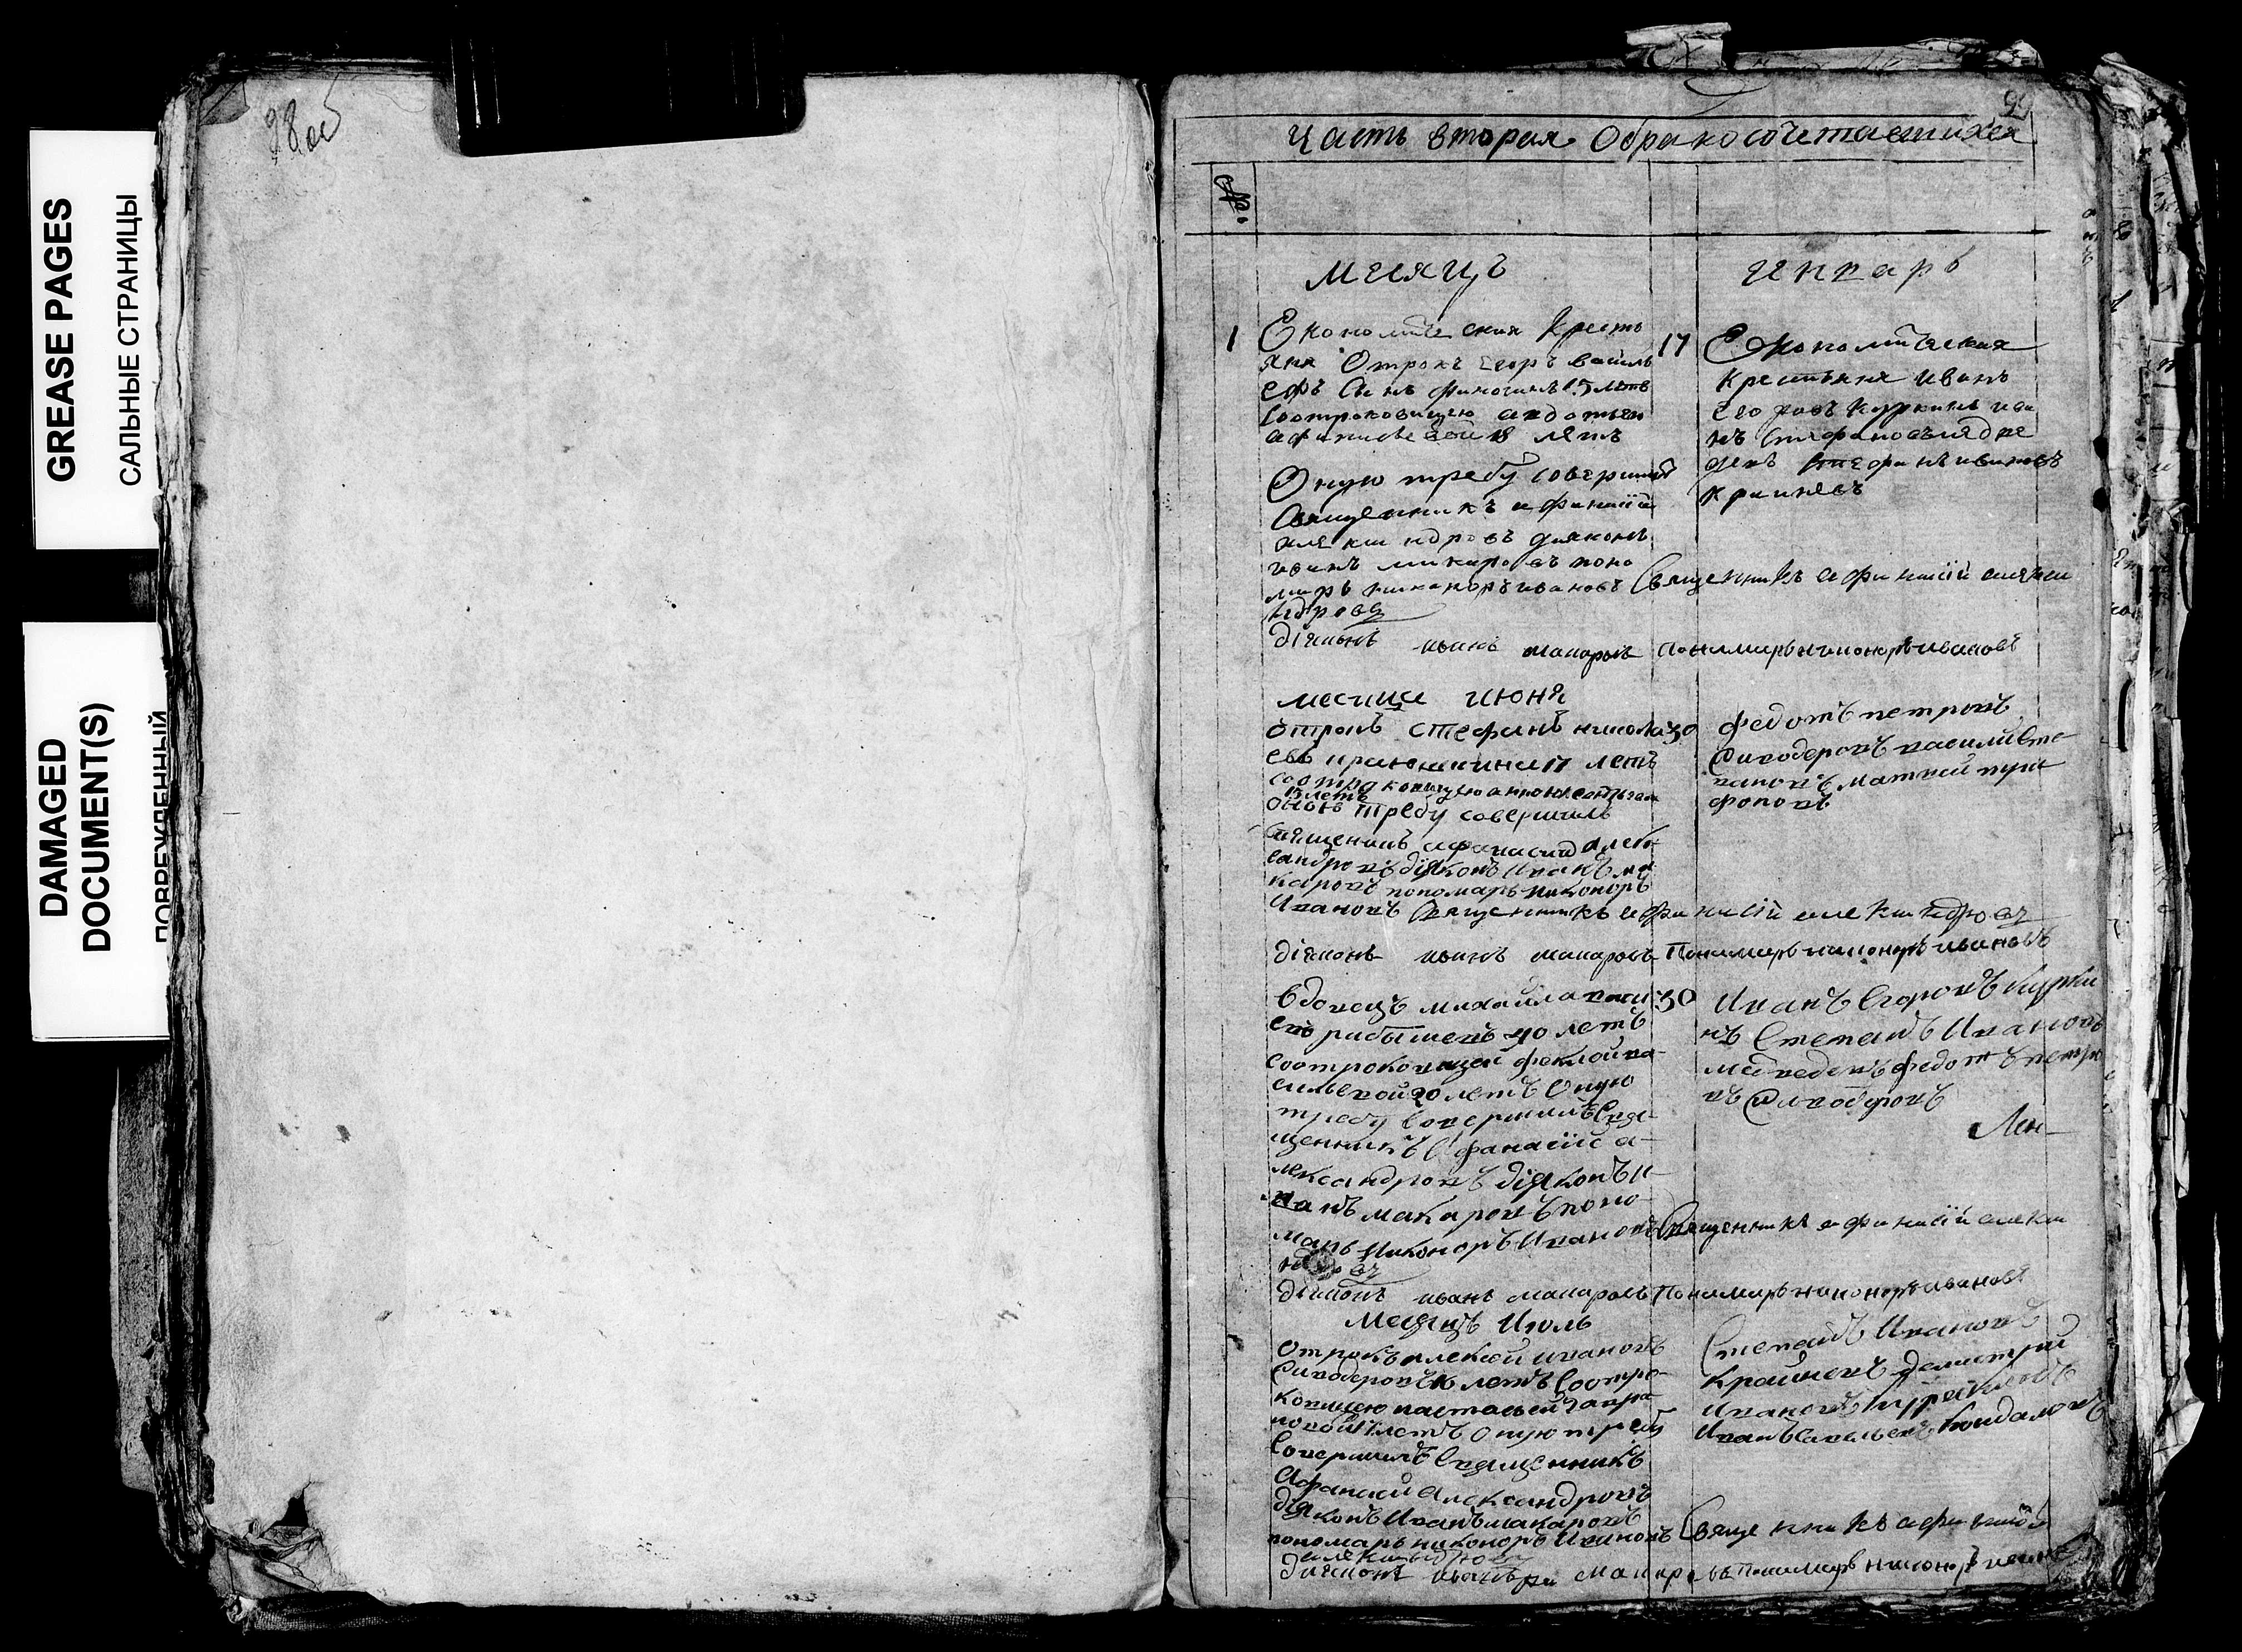 GREASE PAGES
САЛЬНЫЕ СТРАНИЦЫ
DAMAGED
DOCUMENT(S)
ПОВРЕЖДЕННЫЙ
98 об
99
Часть вторая О бракосочетавшихся
№.
месяцъ
генварь
1
Економическия кресть
янн Отрокъ Егоръ василь
евъ Сынъ 15 летъ
соотроковицею авдотьею
18 летъ
Оную требу совершилъ
Священникъ афанасiй
александровъ дияконъ
иванъ макаровъ поно
марь никаноръ ивановъ
17
Економическия
крестьяня иванъ
Егоровъ куркинъ ива
нъ Стефановъ медве
девъ Стефанъ ивановъ
крайневъ
Священникъ афанасiй алекса
ндровъ
дiяконъ иванъ макаровъ пономарь никоноръ ивановъ
месица июня
отрокъ стефанъ никола
евъ 17 летъ
15 летъ
оную требу совершилъ
священикъ афанасий алек
сандровъ дiяконъ Иванъ ма
каровъ пономарь никоноръ
Ивановъ
30
федотъ петровъ
Сиводеровъ василий сте
пановъ матвей
Священникъ афанасiй александровъ
дiяконъ иванъ макаровъ Пономарь никоноръ ивановъ
вдовецъ михайла васи
евъ 40 летъ
соотроковицей феклой ва
сильевой 20 летъ Оную
требу Совершилъ Свя
щенникъ Афанасiй а
лександровъ дiяконъ И
ванъ макаровъ поно
марь Никоноръ Ивановъ
30
Иванъ Егоровъ Курки
нъ Степанъ Ивановъ
медведевъ федотъ петро
въ Сиводеровъ
Священникъ афанасiй алекса
ндровъ
дiяконъ иванъ макаровъ Пономарь никоноръ ивановъ
Месяцъ Июль
отрокъ алексей ивановъ
Сиводеровъ 16 летъ Соотро
ковицею настасьей
летъ Оную требу
Совершилъ Священникъ
Афанасей Александровъ
дiяконъ Иванъ макаровъ
пономарь никоноръ Ивановъ
Степанъ Ивановъ
Крайневъ димитрий
Ивановъ
Иванъ Савельевъ
Священникъ афанасiй
александровъ
дiяконъ иванъ макаровъ Пономарь никоноръ ивановъ